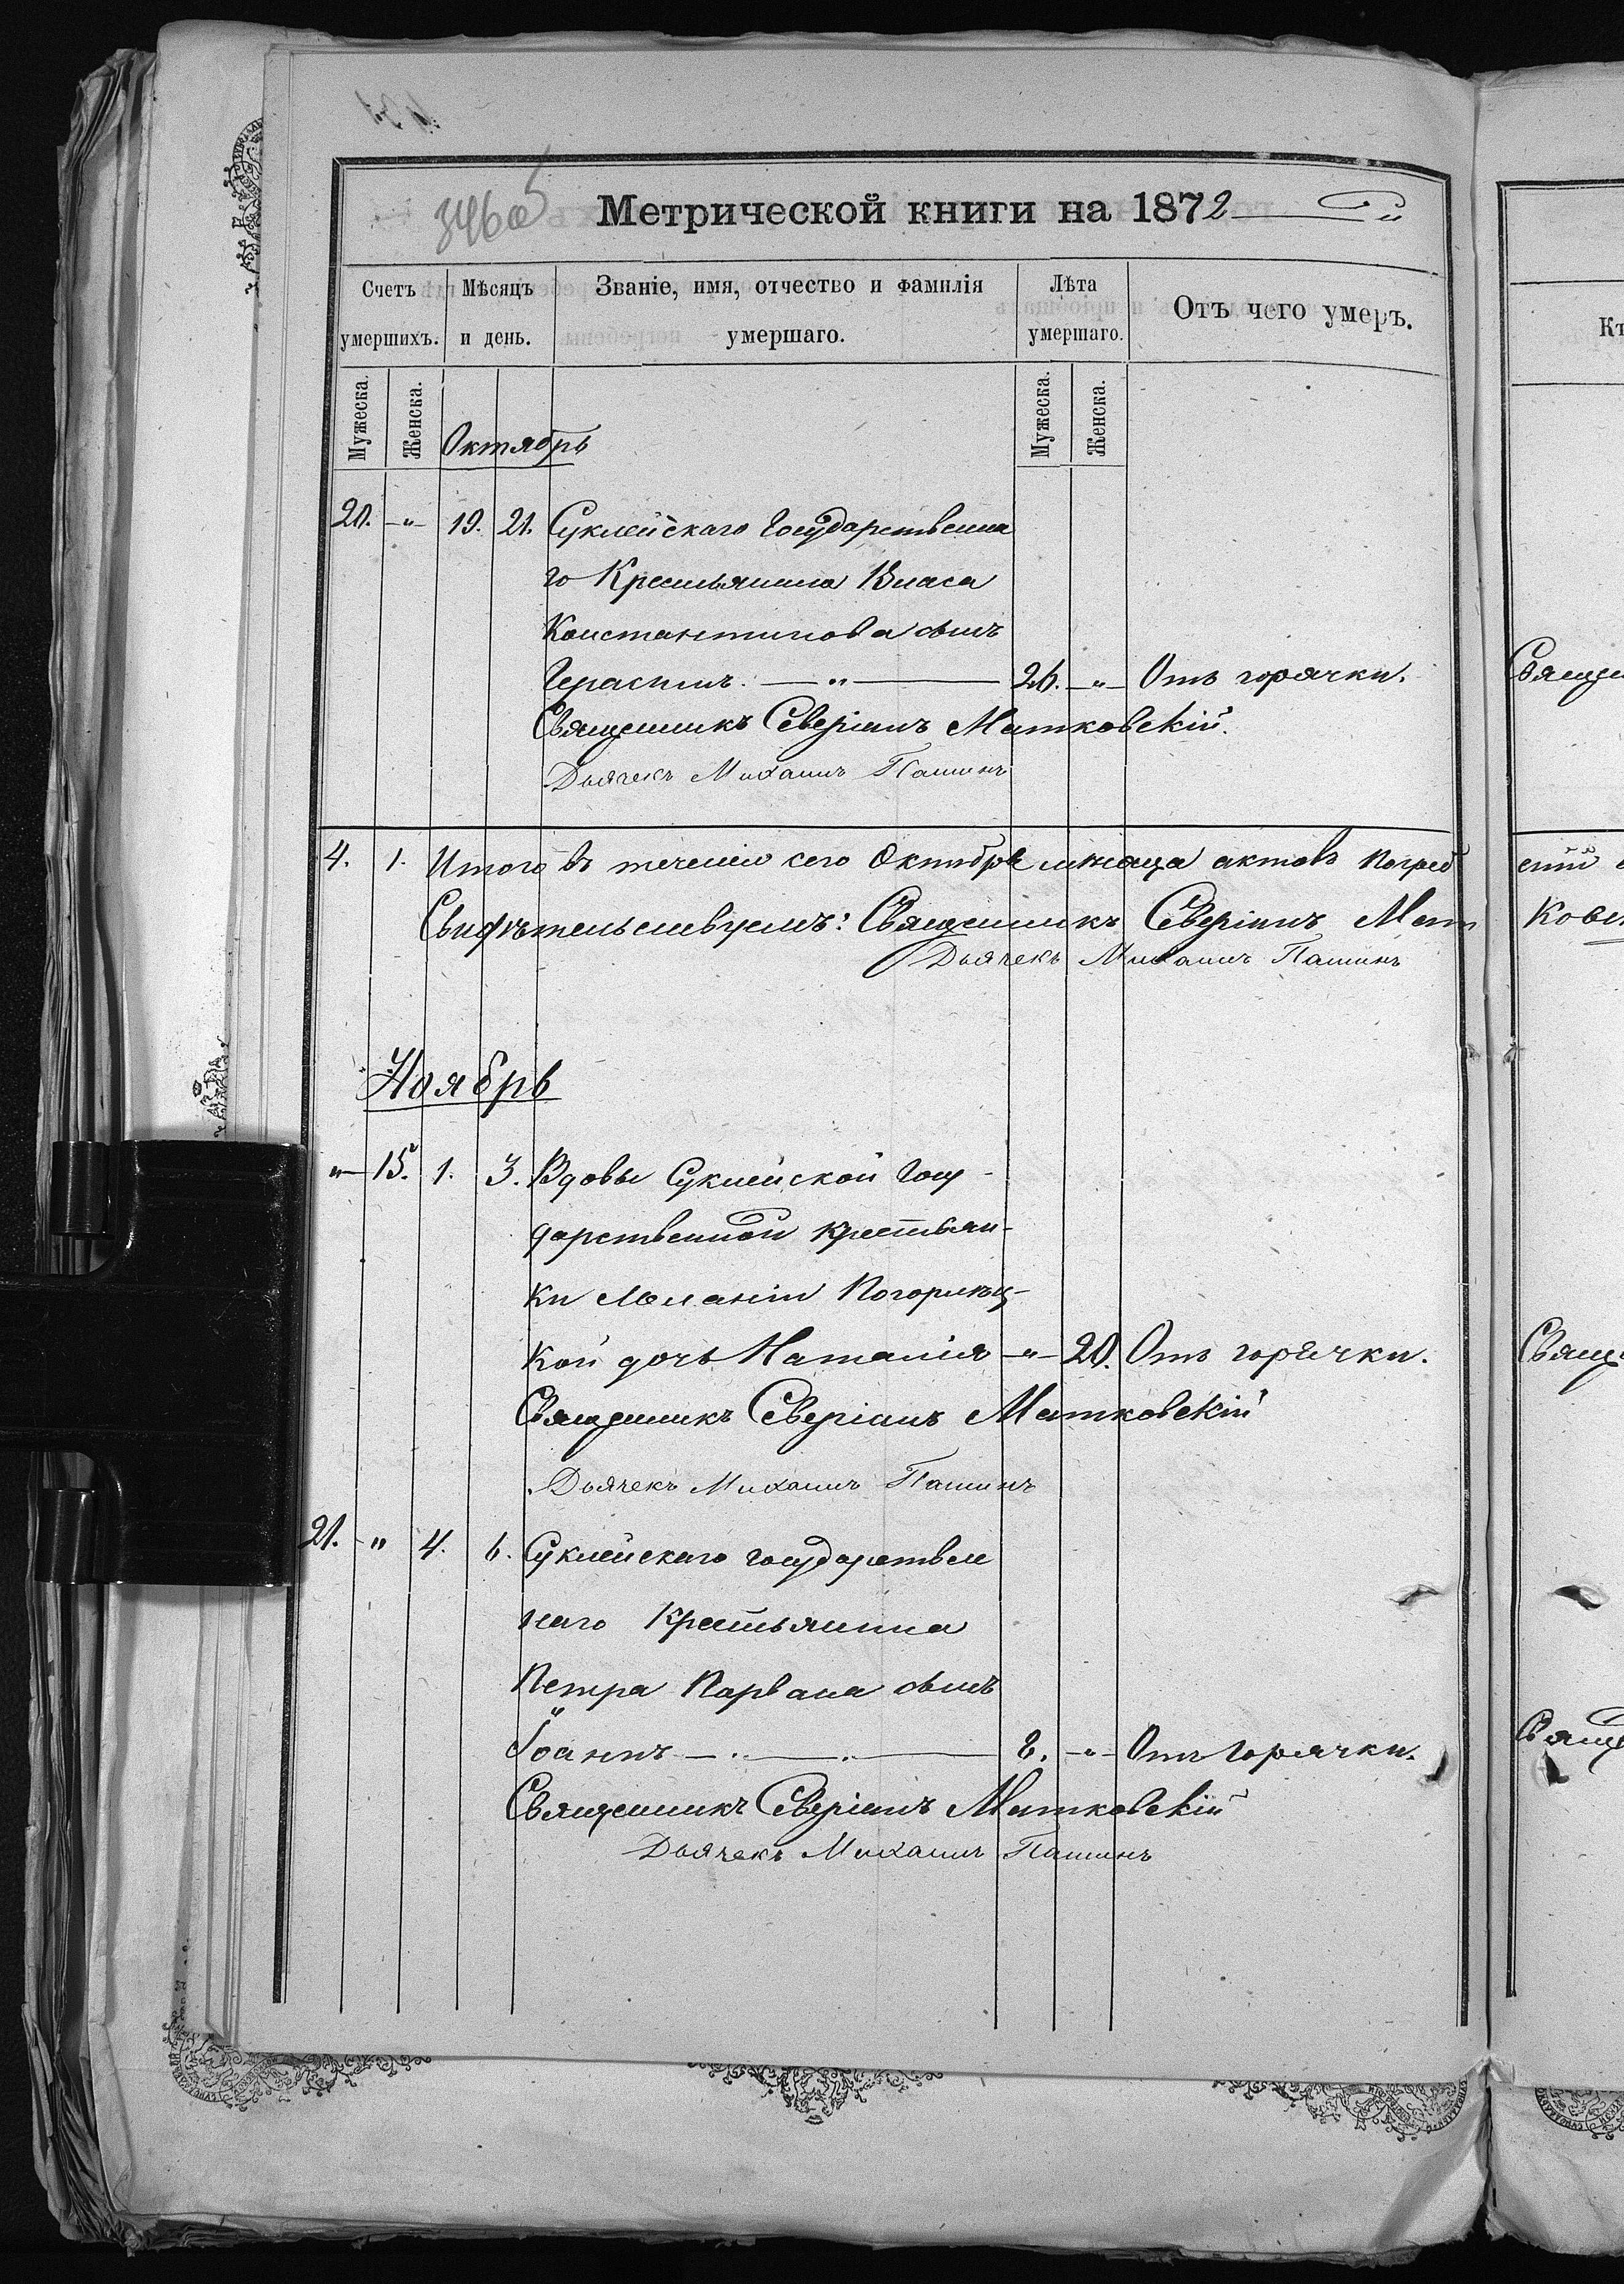 346об
Метрической книги на 1872
Счетъ умершихъ. Мѣсяцъ и день. Званіе, имя, отчество и фамилія умершаго. Лѣта умершаго. Отъ чего умеръ.
Мужеска. Женска. Мужеска. Женска.
Октябрь
20. -"- 19. 21. Суклейскаго Государственна
го Крестьянина Власа
Константинова сынъ
Герасимъ. —"— 26. -"- Отъ горячки.
Священникъ Северіанъ Матковскій.
Дьячекъ Михаилъ Пашинъ
4. 1. Итого въ теченіи сего Октября мѣсяца актовъ погреб
Свидѣтельствуемъ: Священникъ Северіанъ Мат
Дьячекъ Михаилъ Пашинъ
Ноябрь
"- 15. 1. 3. Вдовы Суклейской Госу-
дарственной крестьян-
ки Меланіи Погорлец-
кой дочь Наталія -"- 20. Отъ горячки.
Священникъ Северіанъ Матковскій
Дьячекъ Михаилъ Пашинъ
21. -" 4. 6. Суклейскаго государствен
наго Крестьянина
Петра Карвана сынъ
Іоаннъ —"—"— 2. -"- Отъ горячки.
Священникъ Северіанъ Матковскій
Дьячекъ Михаилъ Пашинъ